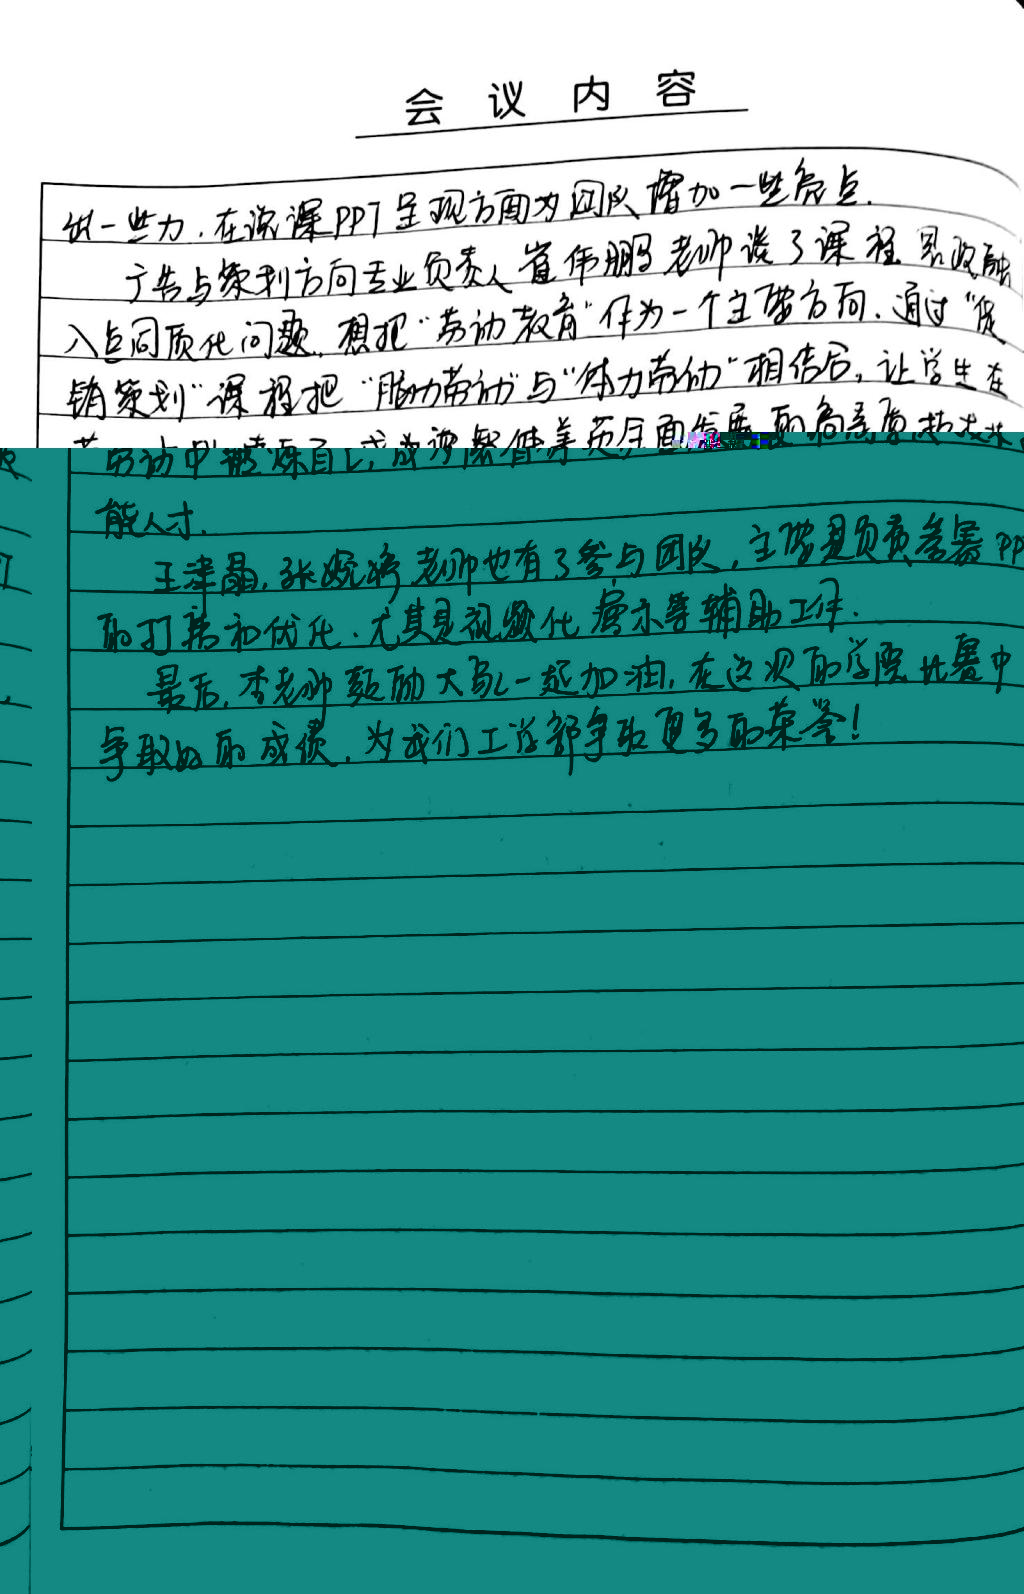 会议内容
出一些力，在说课PPT呈现方面为团队增加一些亮点．
广告与策划方向专业负责人崔伟鹏老师谈了课程思政融
入点同质化问题，想把“劳动教育”作为一个主要方向，通过“促
销策划”课程把“脑力劳动”与“体力劳动”相结合，让学生在
劳动中锻炼自己，成为德智体美劳全面发展的高素质技术技
能人才．
王津晶，张婉婷老师也有了参与团队，主要是负责参赛PP
的打磨和优化．尤其是视频化展示等辅助工作．
最后，李老师鼓励大家一起加油，在这次的学院比赛中
争取好的成绩，为我们工学部争取更多的荣誉！